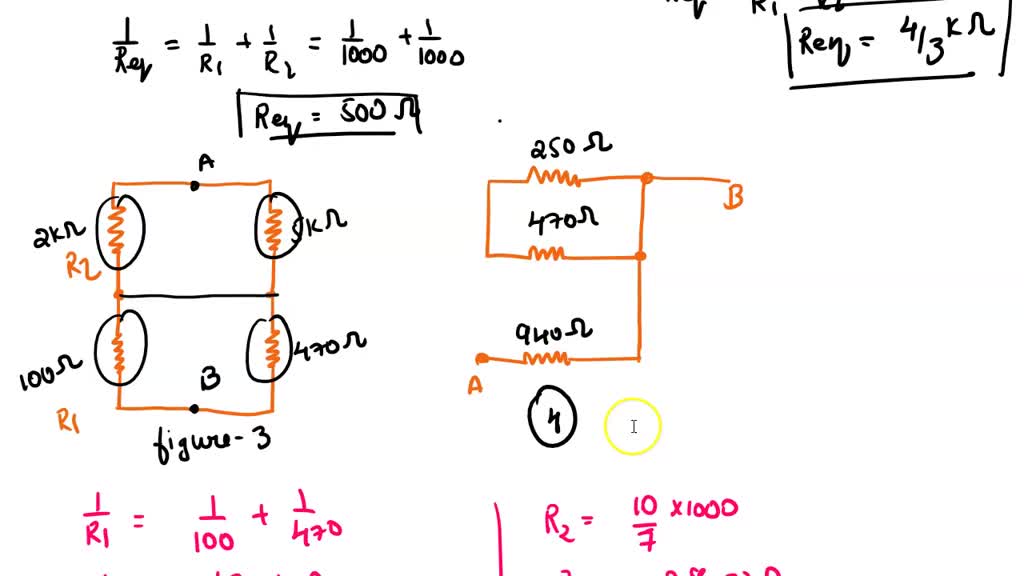 1/Req = 1/R1 + 1/R2 = 1/1000 + 1/1000
Req = 500 Ω
Req = 4/3 kΩ
A
2kΩ
R2
5kΩ
100Ω
R1
470Ω
B
figure-3
250 Ω
470Ω
B
940Ω
A
4
1/R1 = 1/100 + 1/470
R2 = 10/7 × 1000